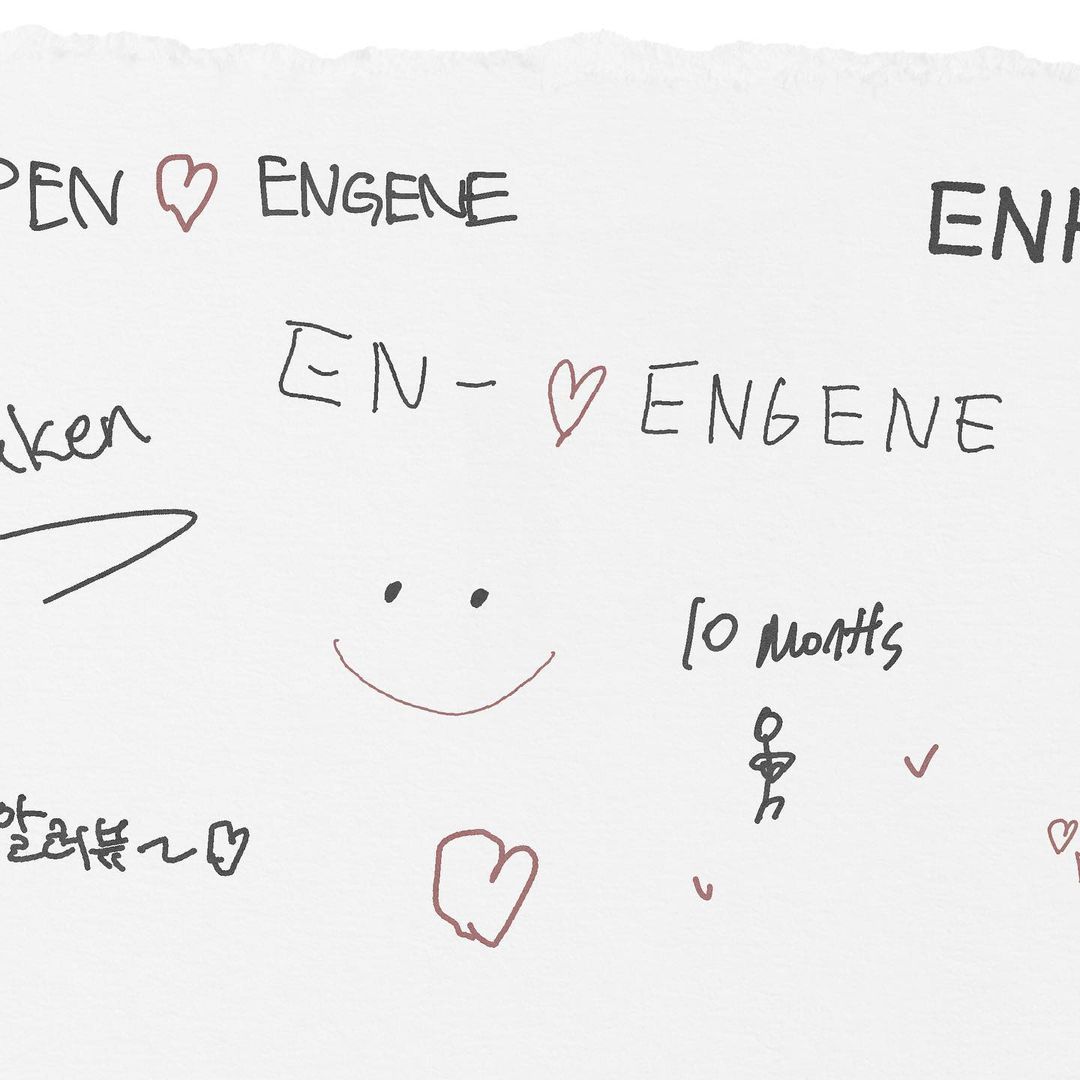 PEN ♡ ENGENE
ENH
EN- ♡ ENGENE
ken
10 MONTHS
알러뷰~♡